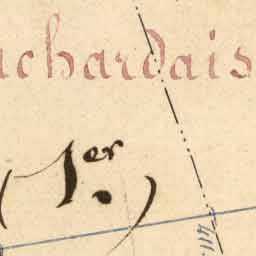 achardais
(1er)